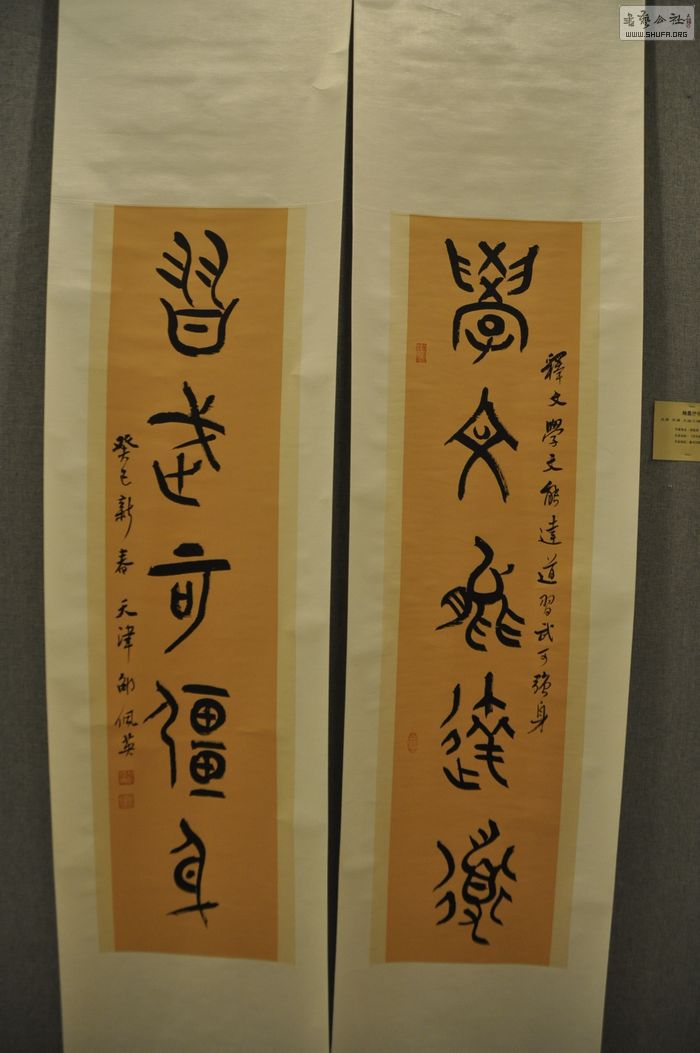 學文能達道
釋文學文能達道習武可強身
習武可彊身
癸巳新春天津邵佩英
書藝公社
WWW.SHUFA.ORG